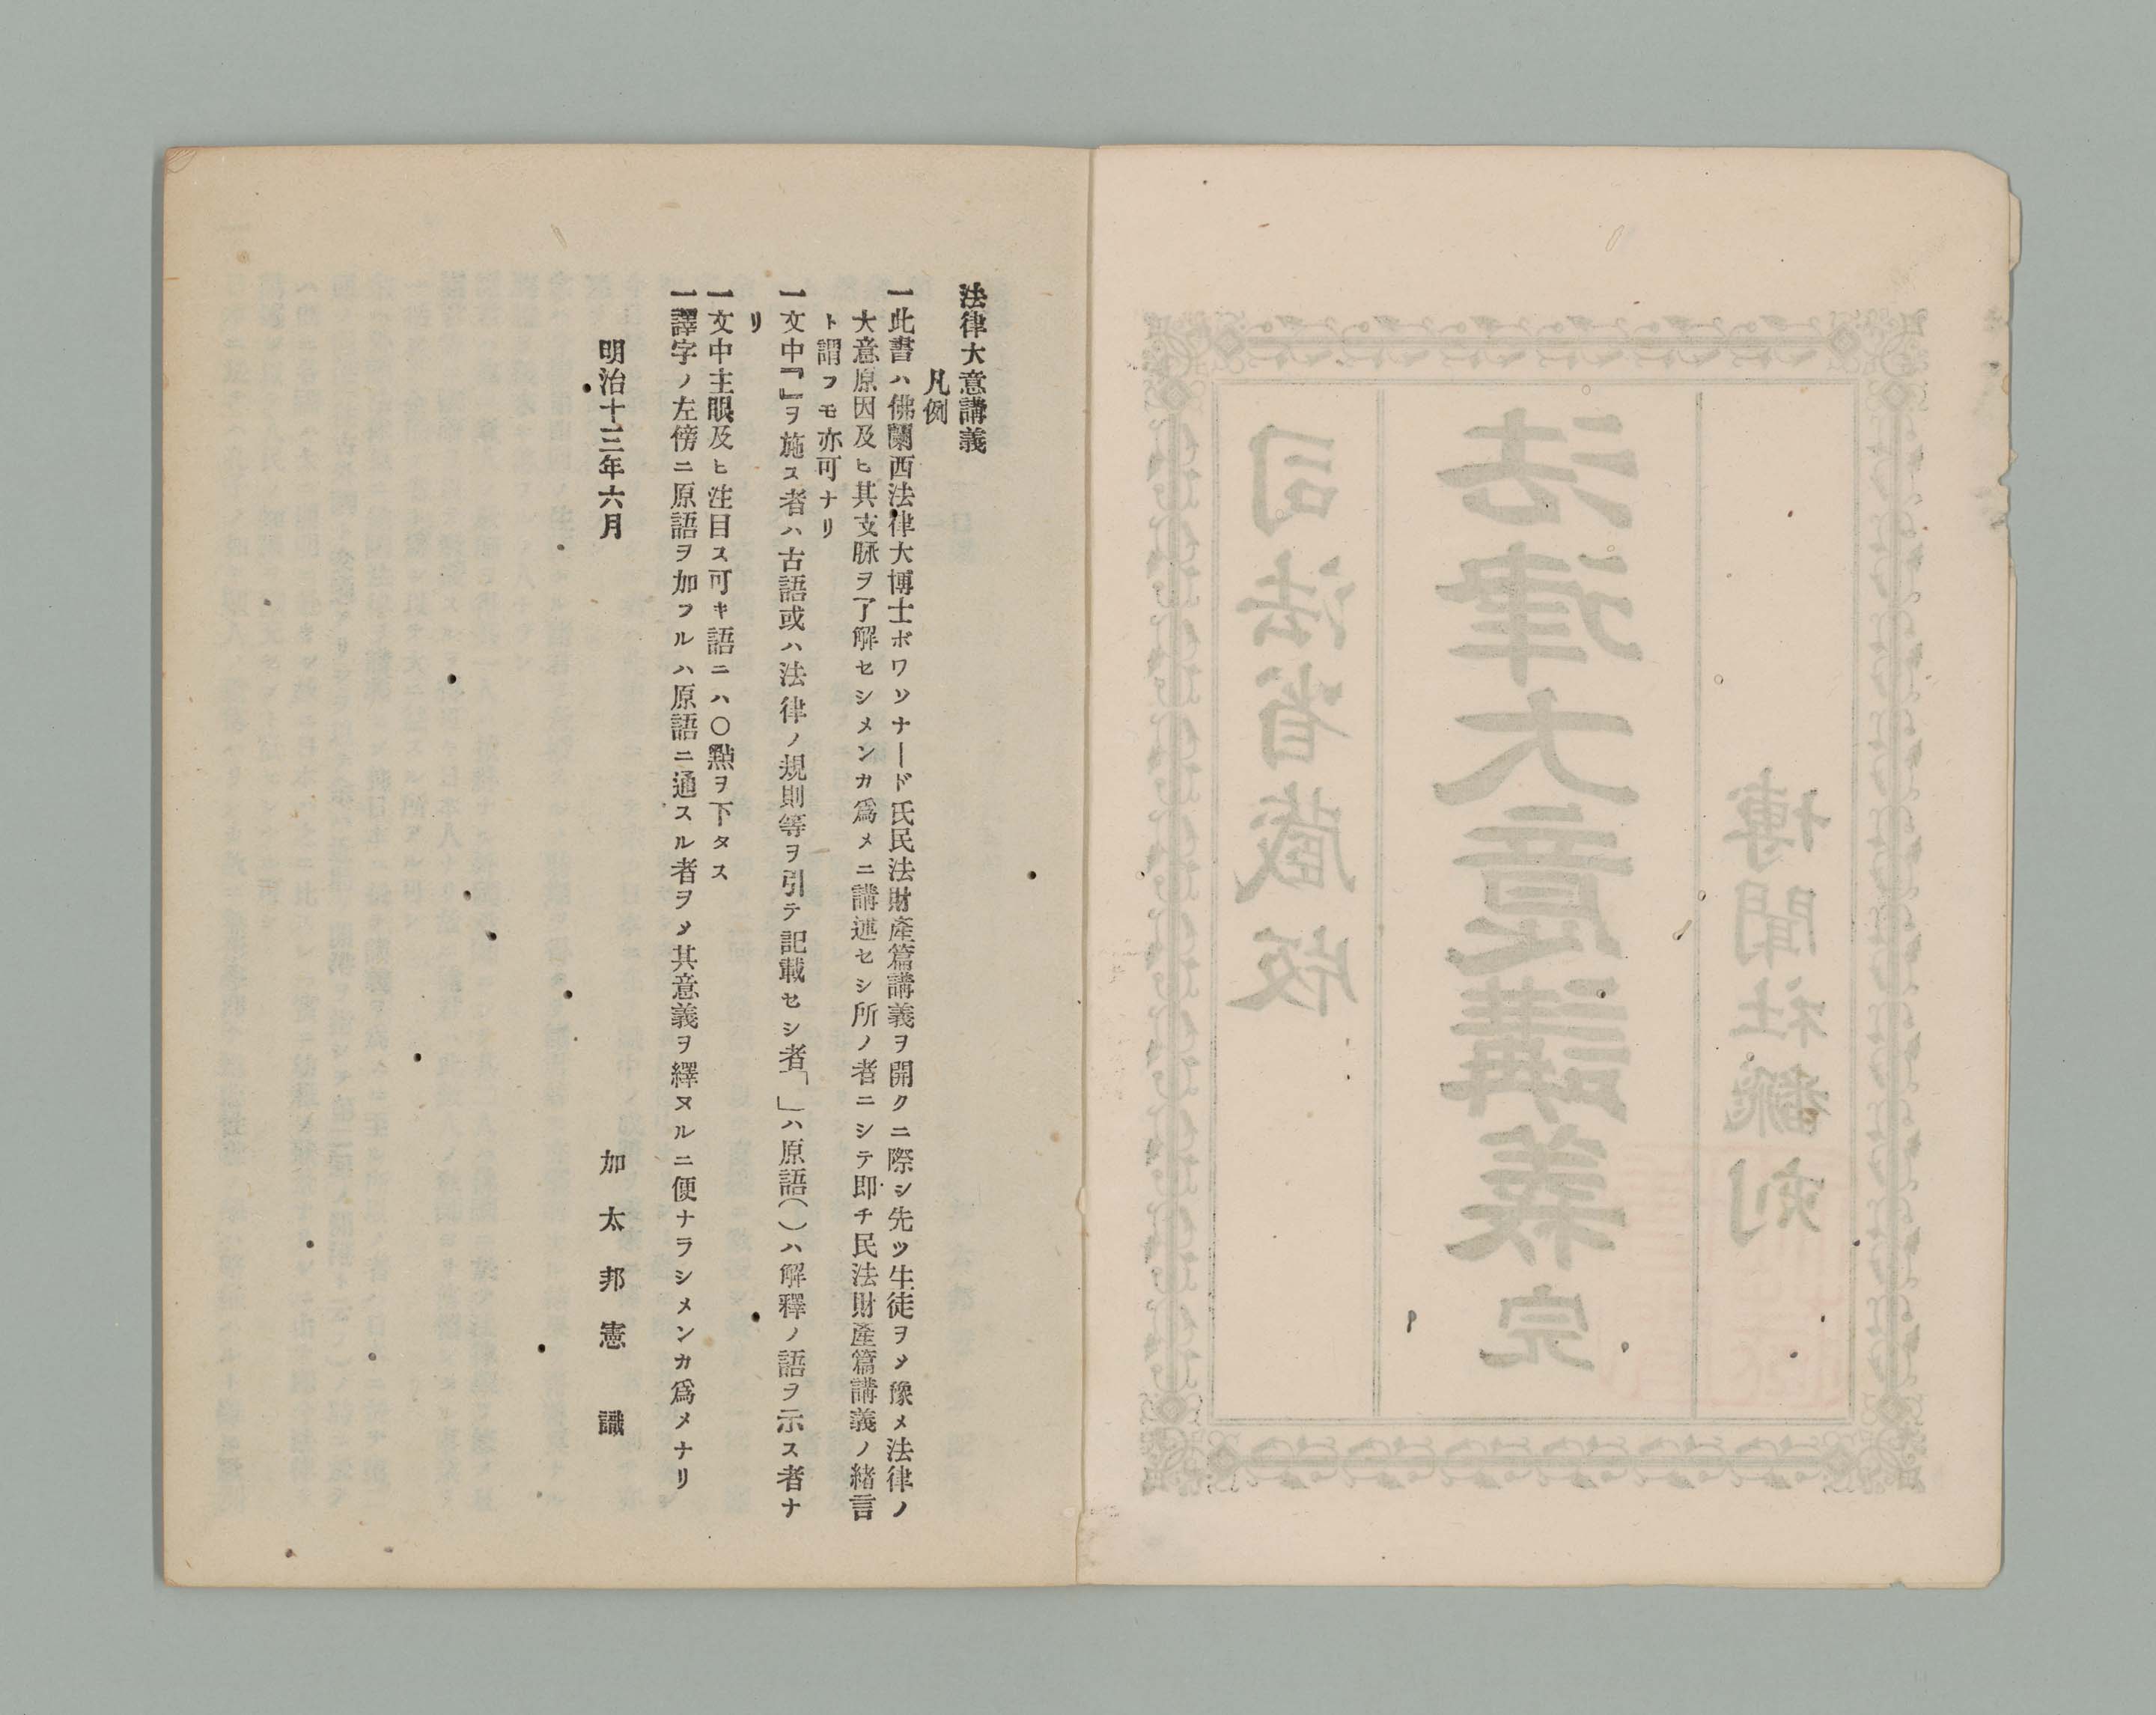 博聞社飜刻
法律大意講義完
司法省藏版
法律大意講義
凡例
一此書ハ佛蘭西法律大博士ボワソナード氏民法財產篇講義ヲ開クニ際シ先ツ生徒ヲメ豫メ法律ノ
大意原因及ヒ其支脉ヲ了解セシメンカ爲メニ講述セシ所ノ者ニシテ即チ民法財產篇講義ノ緖言
ト謂フモ亦可ナリ
一文中『』ヲ施ス者ハ古語或ハ法律ノ規則等ヲ引テ記載セシ者「」ハ原語()ハ解釋ノ語ヲ示ス者ナ
リ
一文中主眼及ヒ注目ス可キ語ニハ○點ヲ下タス
一譯字ノ左傍ニ原語ヲ加フルハ原語ニ通スル者ヲメ其意義ヲ繹ヌルニ便ナラシメンカ爲メナリ
明治十三年六月
加太邦憲識